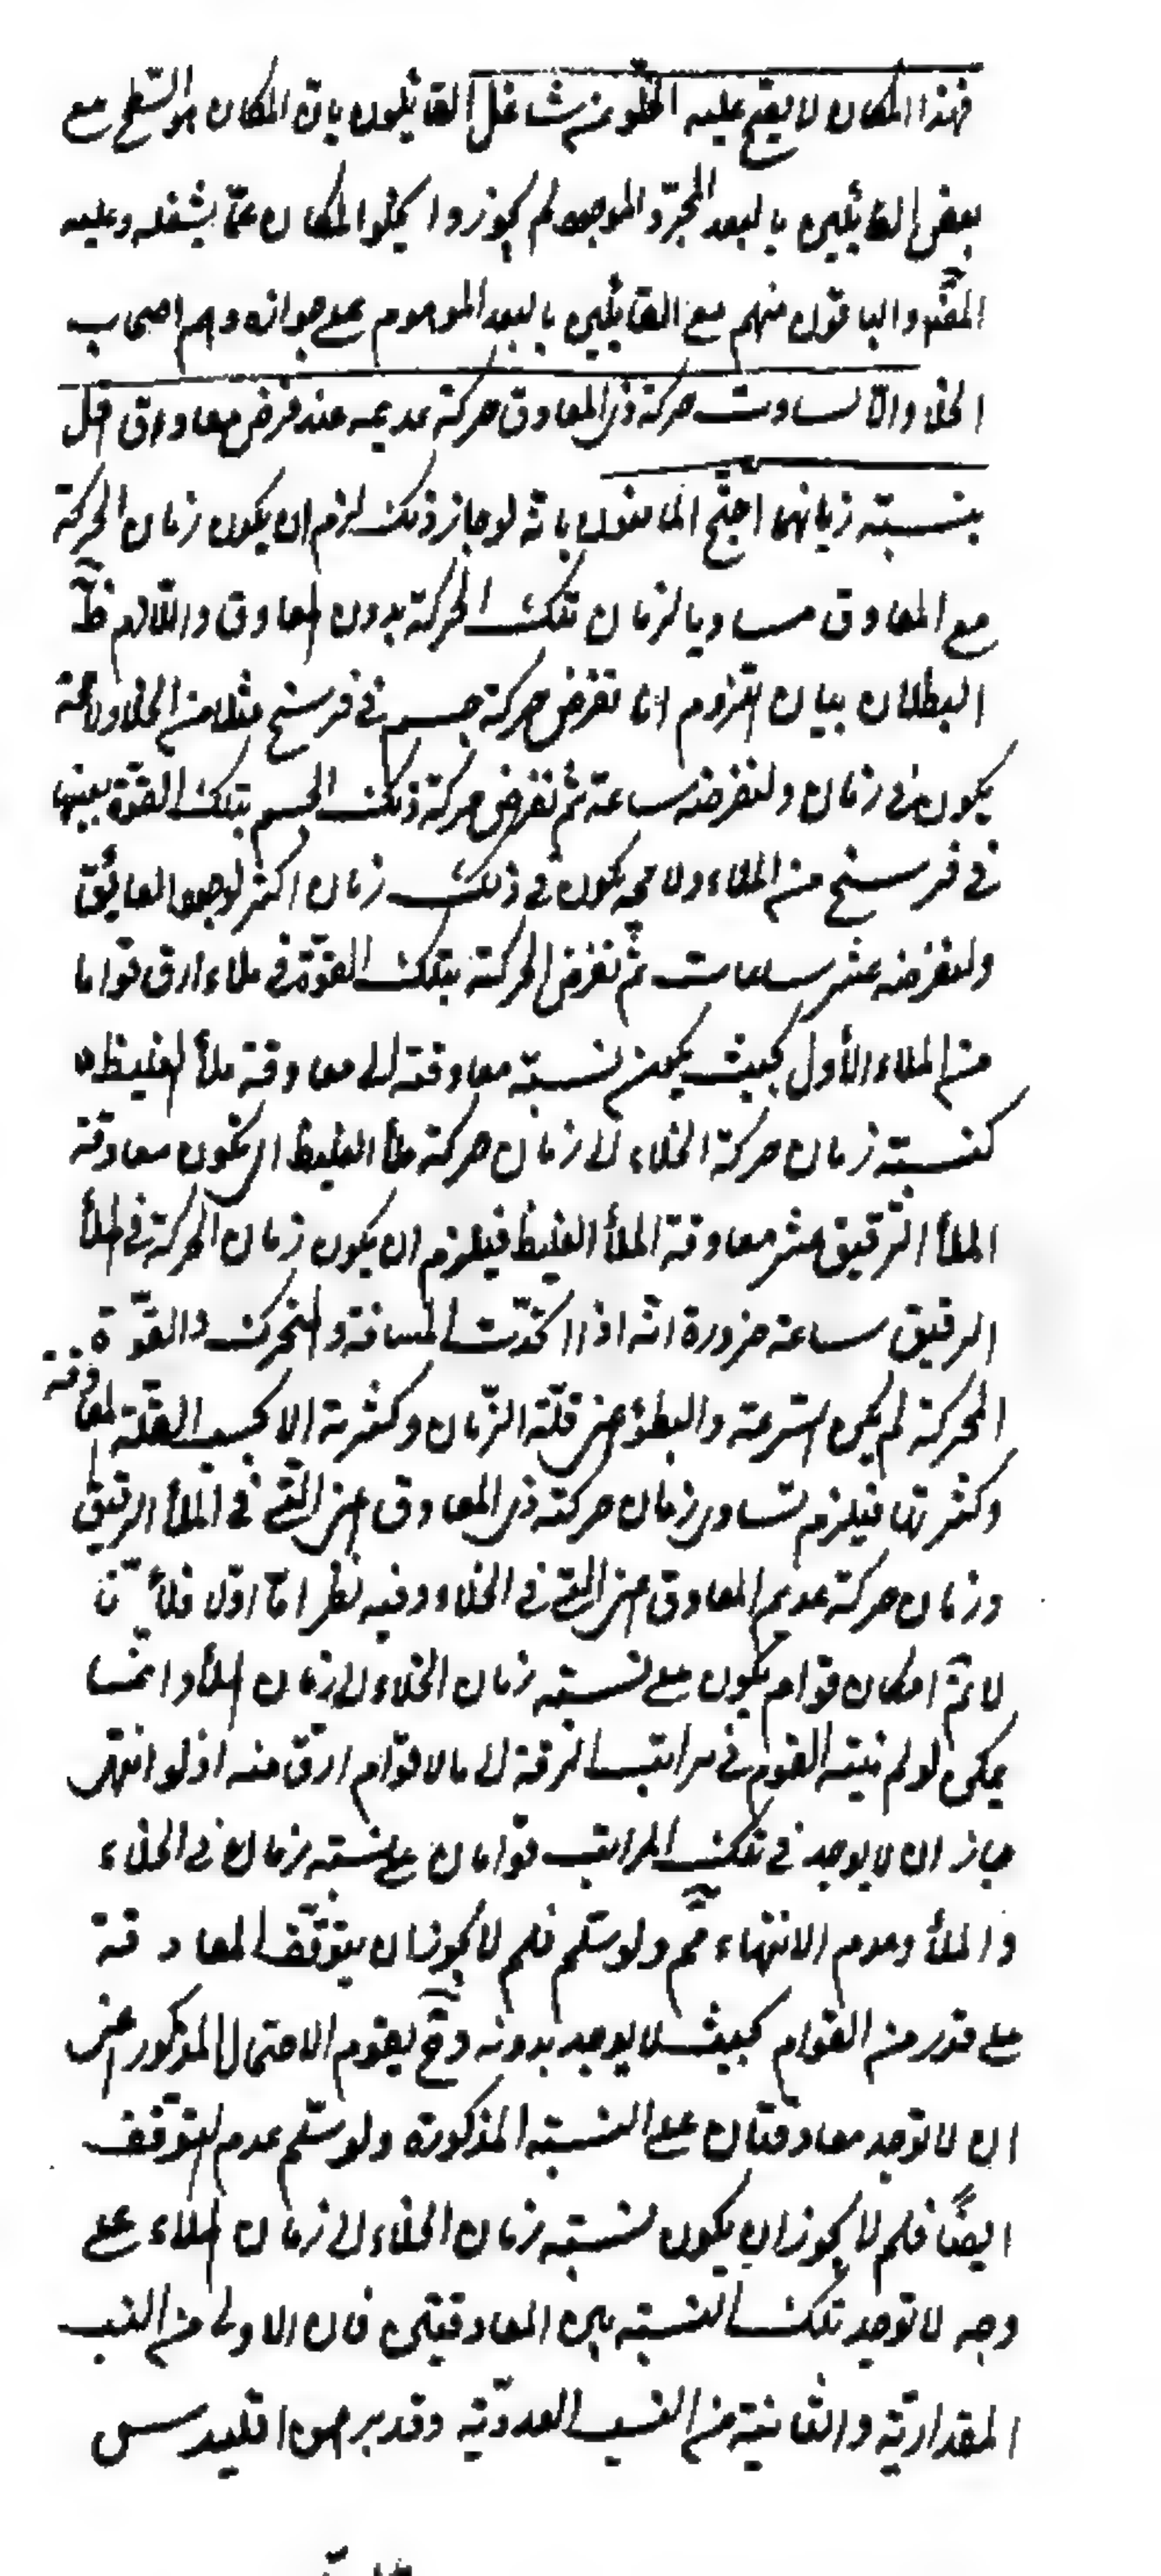 فهذا المكان لا يصح عليه الخلو من شاغل القائلون بان المكان هو السّطح مع
بعض القائلين بالبعد المجرّد الموجود لم يجوزوا خلو المكان عمّا يشغله وعليه
المصنف والباقون منهم مع القائلين بالبعد الموهوم على جوازه وهم اصحاب
الخلاء والا لساوت حركة ذى المعاوق حركة عديمه عند فرض معاوق اقل
بنسبة زمانهما احتجّ المانعون بانه لو جاز ذلك لزم ان يكون زمان الحركة
مع المعاوق مساويا لزمان تلك الحركة بدون المعاوق واللازم ظ
البطلان بيان اللزوم انا نفرض حركة جسم فى فرسخ مثلا من الخلاء ولا محة
يكون فى زمان ولنفرضه ساعة ثم نفرض حركة ذلك الجسم بتلك القوّة بعينها
فى فرسخ من الملاء ولا محه يكون فى ذلك زمان اكثر لوجود العايق
ولنفرضه عشر ساعات ثم نفرض الحركة بتلك القوّة فى ملاء ارق قواما
من الملاء الأول بحيث يكون نسبة معاوقته الى معاوقة ملأ الغليظ
كنسبة زمان حركة الخلاء الى زمان حركة ملأ الغليظ اى يكون معاوقة
الملأ الرّقيق عشر معاوقة الملأ الغليظ فيلزم ان يكون زمان الحركة فى الملأ
الرقيق ساعة ضرورة انّه اذا اتحدّت المسافة والمتحرك والقوّة
المحركة لم يكن السّرعة والبطؤ اعنى قلّة الزّمان وكثرته الا بحسب القلّة المعاوقة
وكثرتها فيلزم تساوى زمان حركة ذى المعاوق اعنى الّتى فى الملأ الرقيق
وزمان حركة عديم المعاوق اعنى الّتى فى الخلاء وفيه نظر امّا اوّلا فلأنّا
لا نمّ امكان قوام يكون على نسبة زمان الخلاء الى زمان الملأ وانّما
يمكن لو لم ينته القوم فى مراتب الرقة الى ما لا قوام ارق منه اذ لو انتهى
جاز ان لا يوجد فى تلك المراتب قوامان على نسبة زمان فى الخلاء
والملأ وعدم الانتهاء مم ولو سلّم فلم لا يجوز ان يتوقّف المعاوقة
على قدر من القوام بحيث لا يوجد بدونه وح يقوم الاحتمال المذكور اعنى
ان لا توجد معاوقتان على النسبة المذكورة ولو سلّم عدم التوقف
ايضًا فلم لا يجوز ان يكون نسبة زمان الخلاء الى زمان الملاء على
وجه لا توجد تلك النسبة بين المعاوقتين فان الاولى من النسب
المقدارية والثانية من النسب العدديّة وقد برهن اقليدس